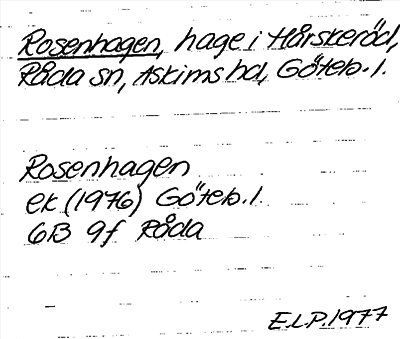 Rosenhagen, hage i Hårskeröd,
Råda sn, Askims hd, Göteb. l.
Rosenhagen
ek (1976) Göteb. l.
6B 9f Råda
E.L.P. 1977